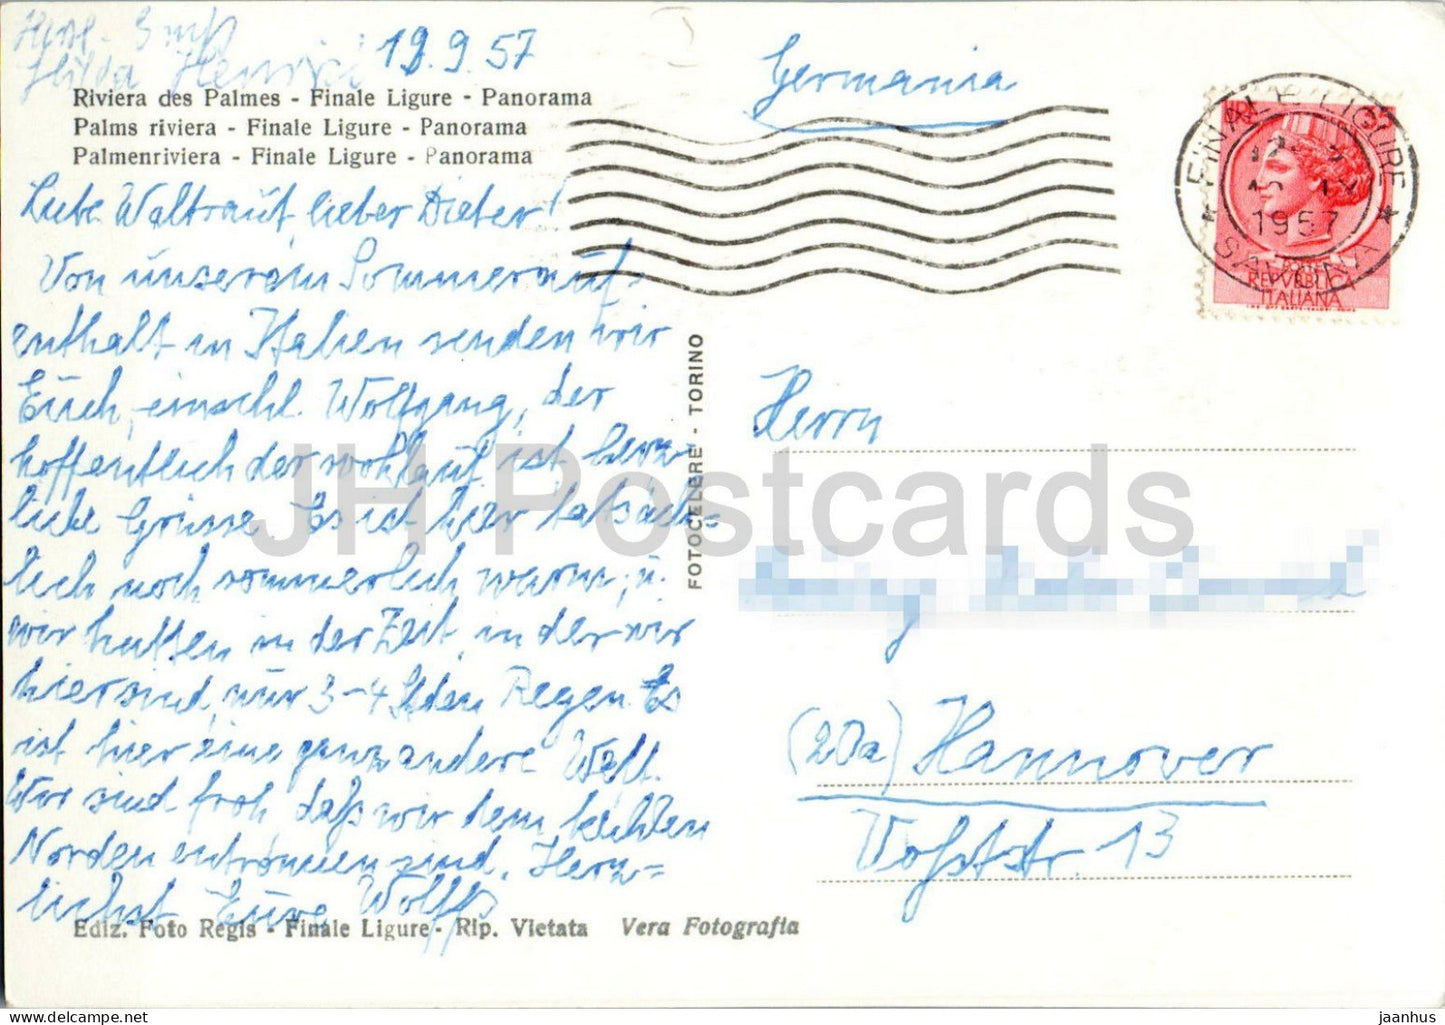 Herzl. Gruß
Hilda Henrici
19.9.57
Riviera des Palmes - Finale Ligure - Panorama
Palms riviera - Finale Ligure - Panorama
Palmenriviera - Finale Ligure - Panorama
Liebe Waltraut, lieber Dieter!
Von unserem Sommerauf-
enthalt in Italien senden wir
Euch, einschl. Wolfgang, der
hoffentlich der wohlauf ist, herz-
liche Grüsse. Es ist hier tatsäch=
lich noch sommerlich warm, u.
wir hatten in der Zeit, in der wir
hier sind, nur 3-4 Stden Regen. Es
ist hier eine ganz andere Welt.
Wir sind froh, daß wir dem kühlen
Norden entronnen sind. Herz=
lichst Eure Wolffs
Ediz. Foto Regis - Finale Ligure - Rip. Vietata Vera Fotografia
FOTOCELERE - TORINO
Germania
FINALE LIGURE
1957
SAVONA
POSTE
REPVBBLICA
ITALIANA
Herrn
(20a) Hannover
Voßstr. 13
JH Postcards
jaanhus @ delcampe.net